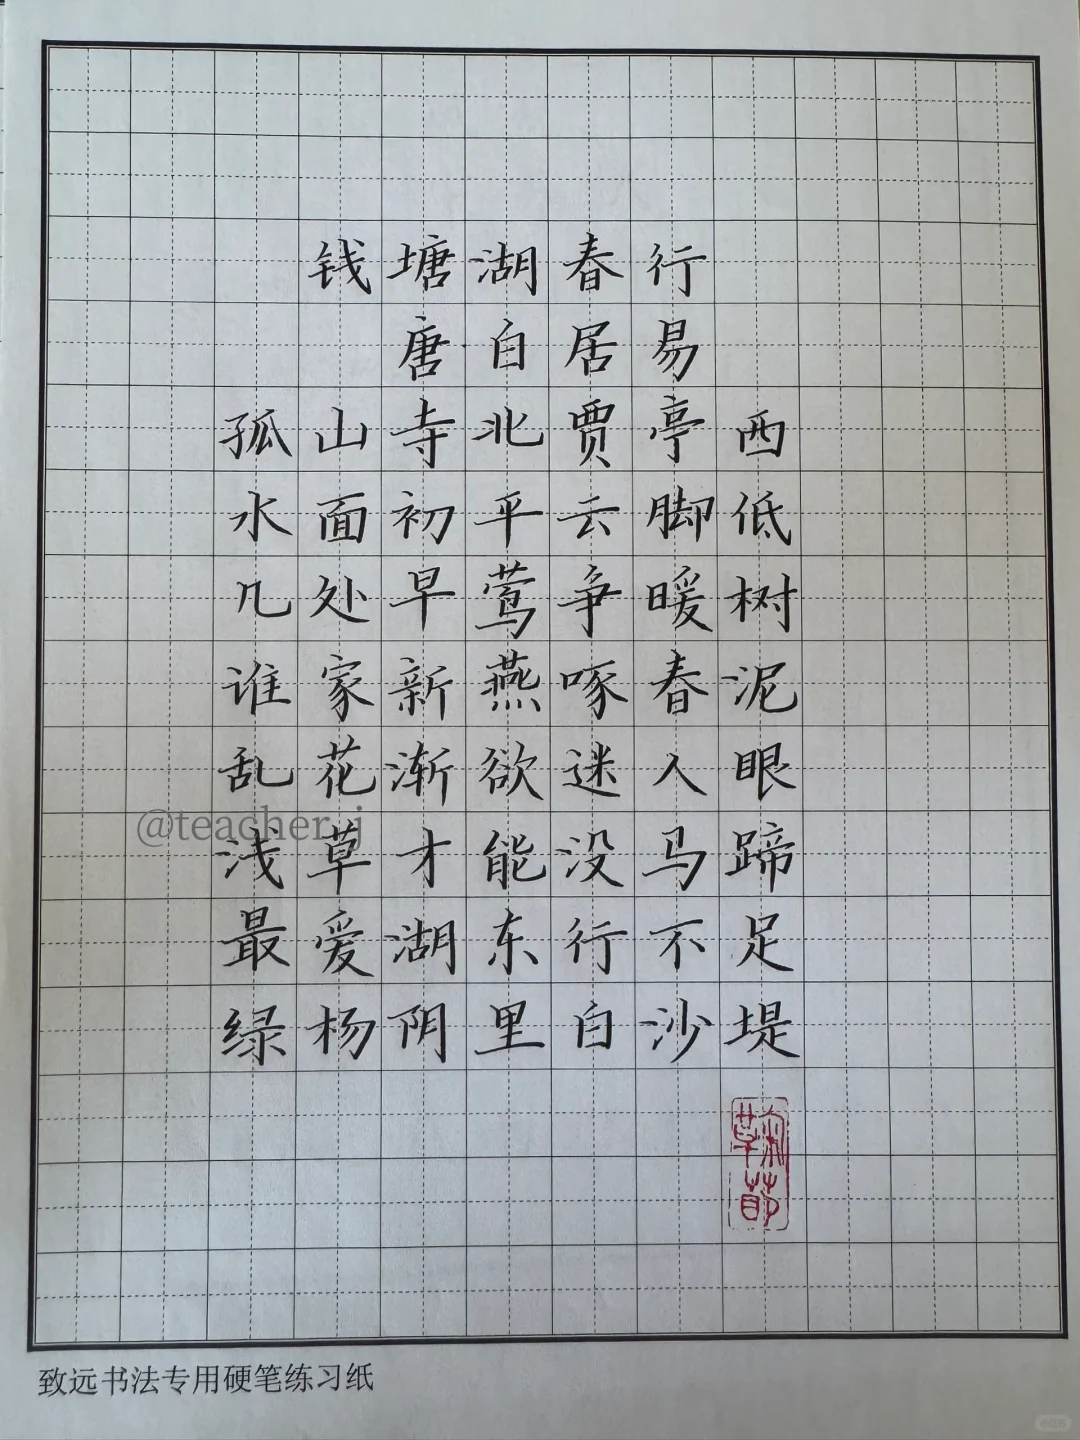 钱塘湖春行
唐·白居易
孤山寺北贾亭西
水面初平云脚低
几处早莺争暖树
谁家新燕啄春泥
乱花渐欲迷入眼
@teacher_j
浅草才能没马蹄
最爱湖东行不足
绿杨阴里白沙堤
致远书法专用硬笔练习纸